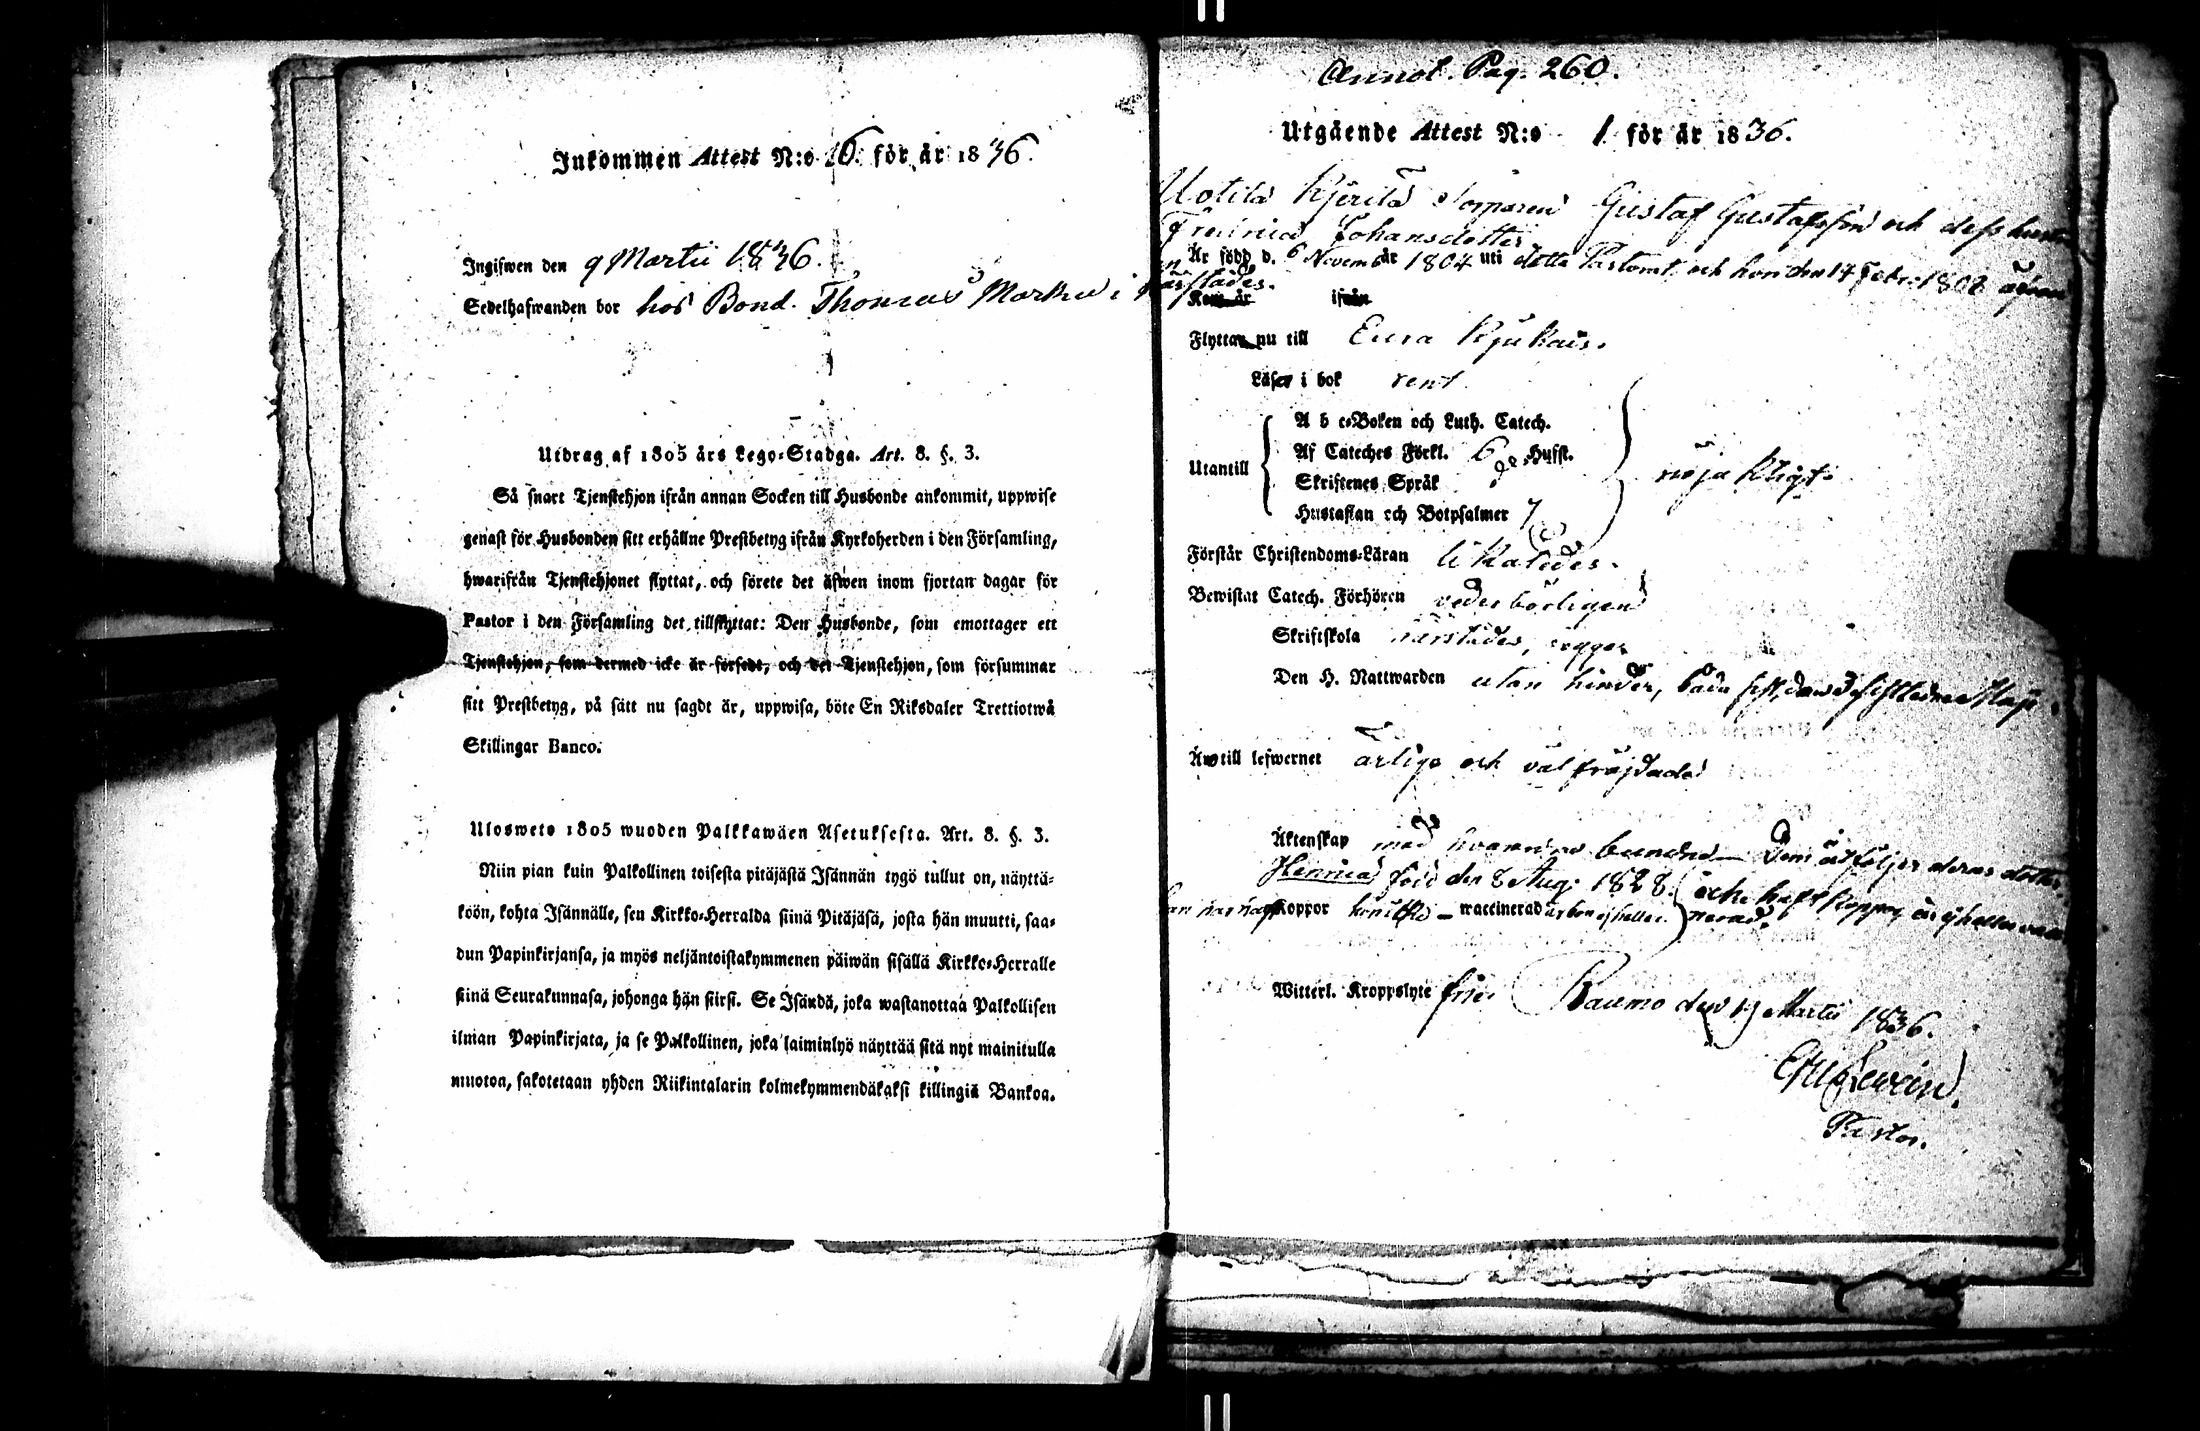 Inkommen Attest N:o 16. för år 1836.
Ingifwen den 9 Martii 1836.
Sedelhafwanden bor hos Bond. Thomas Markus i
Utdrag af 1805 års Lego-Stadga. Art. 8. §. 3.
Så snart Tjenstehjon ifrån annan Socken till Husbonde ankommit, uppwise
genast för Husbonden sitt erhållne Prestbetyg ifrån Kyrkoherden i den Församling,
hwarifrån Tjenstehjonet flyttat, och förete det äfwen inom fjortan dagar för
Pastor i den Församling det tillflyttat: Den Husbonde, som emottager ett
Tjenstehjon, som dermed icke är försedt, och det Tjenstehjon, som försummar
sitt Prestbetyg, på sätt nu sagdt är, uppwisa, böte En Riksdaler Trettiotwå
Skillingar Banco.
Uloswete 1805 wuoden Palkkawäen Asetuksesta. Art. 8. §. 3.
Niin pian kuin Palkollinen toisesta pitäjästä Isännän tygö tullut on, näyttä-
köön, kohta Isännälle, sen Kirkko-Herralda siinä Pitäjäsä, josta hän muutti, saa-
dun Papinkirjansa, ja myös neljäntoistakymmenen päiwän sisällä Kirkko-Herralle
siinä Seurakunnasa, johonga hän siirsi. Se Isändä, joka wastanottaa Palkollisen
ilman Papinkirjata, ja se Palkollinen, joka laiminlyö näyttää sitä nyt mainitulla
muotoa, sakotetaan yhden Riikintalarin kolmekymmendäkaksi killingiä Bankoa.
Annot. Pag. 260.
Utgående Attest N:o 1 för år 1836.
Uotila Kjerila Torparen Gustaf Gustafsson och dess hustru
Johansdotter
Är född d. 6 Novemb år 1804 uti detta Pastorat och hon den 14 Febr. 1802 äfven
härstädes.
Kom är ifrån
Flyttar nu till Eura Kjukais.
Läser i bok rent
A b c-Boken och Luth. Catech.
Utantill Af Cateches Förkl. 6 Hufst.
Skriftenes Språk
Hustaflan och Botpsalmer 7
nöjaktigt.
Förstår Christendoms-Läran likaledes.
Bewistat Catech. Förhören vederbörligen
Skriftskola härstädes,
Den H. Nattwarden utan hinder, båda
Är till lefwernet ärliga och välfräjdade
Äktenskap med hvarandra bundne — Dem åtföljer deras dotter
Henrica född den 8 Aug. 1828. icke haft koppor, är ej heller vacci-
han har haft Koppor hon icke — waccinerad är hon ej heller. nerad.
Witterl. Kroppslyte frie. Raumo den 19 Martii 1836.
Pastor.